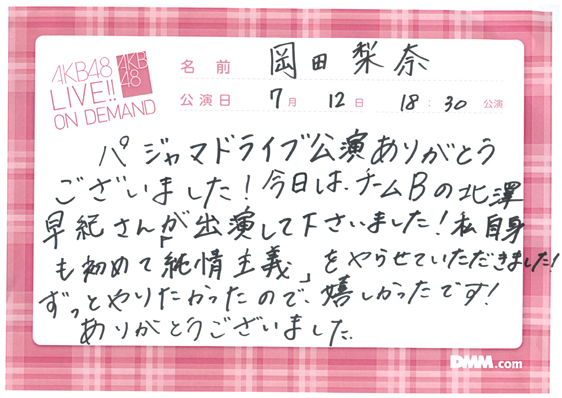 AKB48
LIVE!!
ON DEMAND
AKB
48
名前 岡田梨奈
公演日 7月 12日 18:30 公演
パジャマドライブ公演ありがとう
ございました!今日は、チームBの北澤
早紀さんが出演して下さいました!私自身
も初めて「純情主義」をやらせていただきました!
ずっとやりたかったので、嬉しかったです!
ありがとうございました.
DMM.com